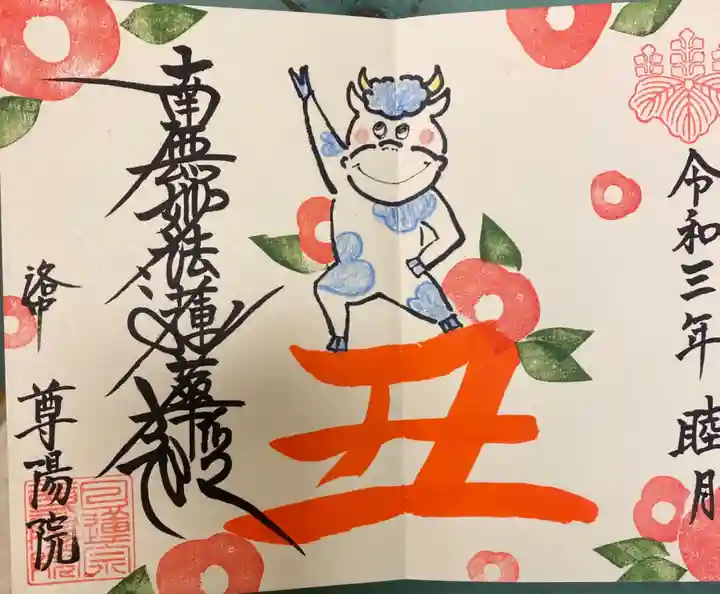 令和三年 睦月
丑
南無妙法蓮華経
洛中 尊陽院
日蓮宗